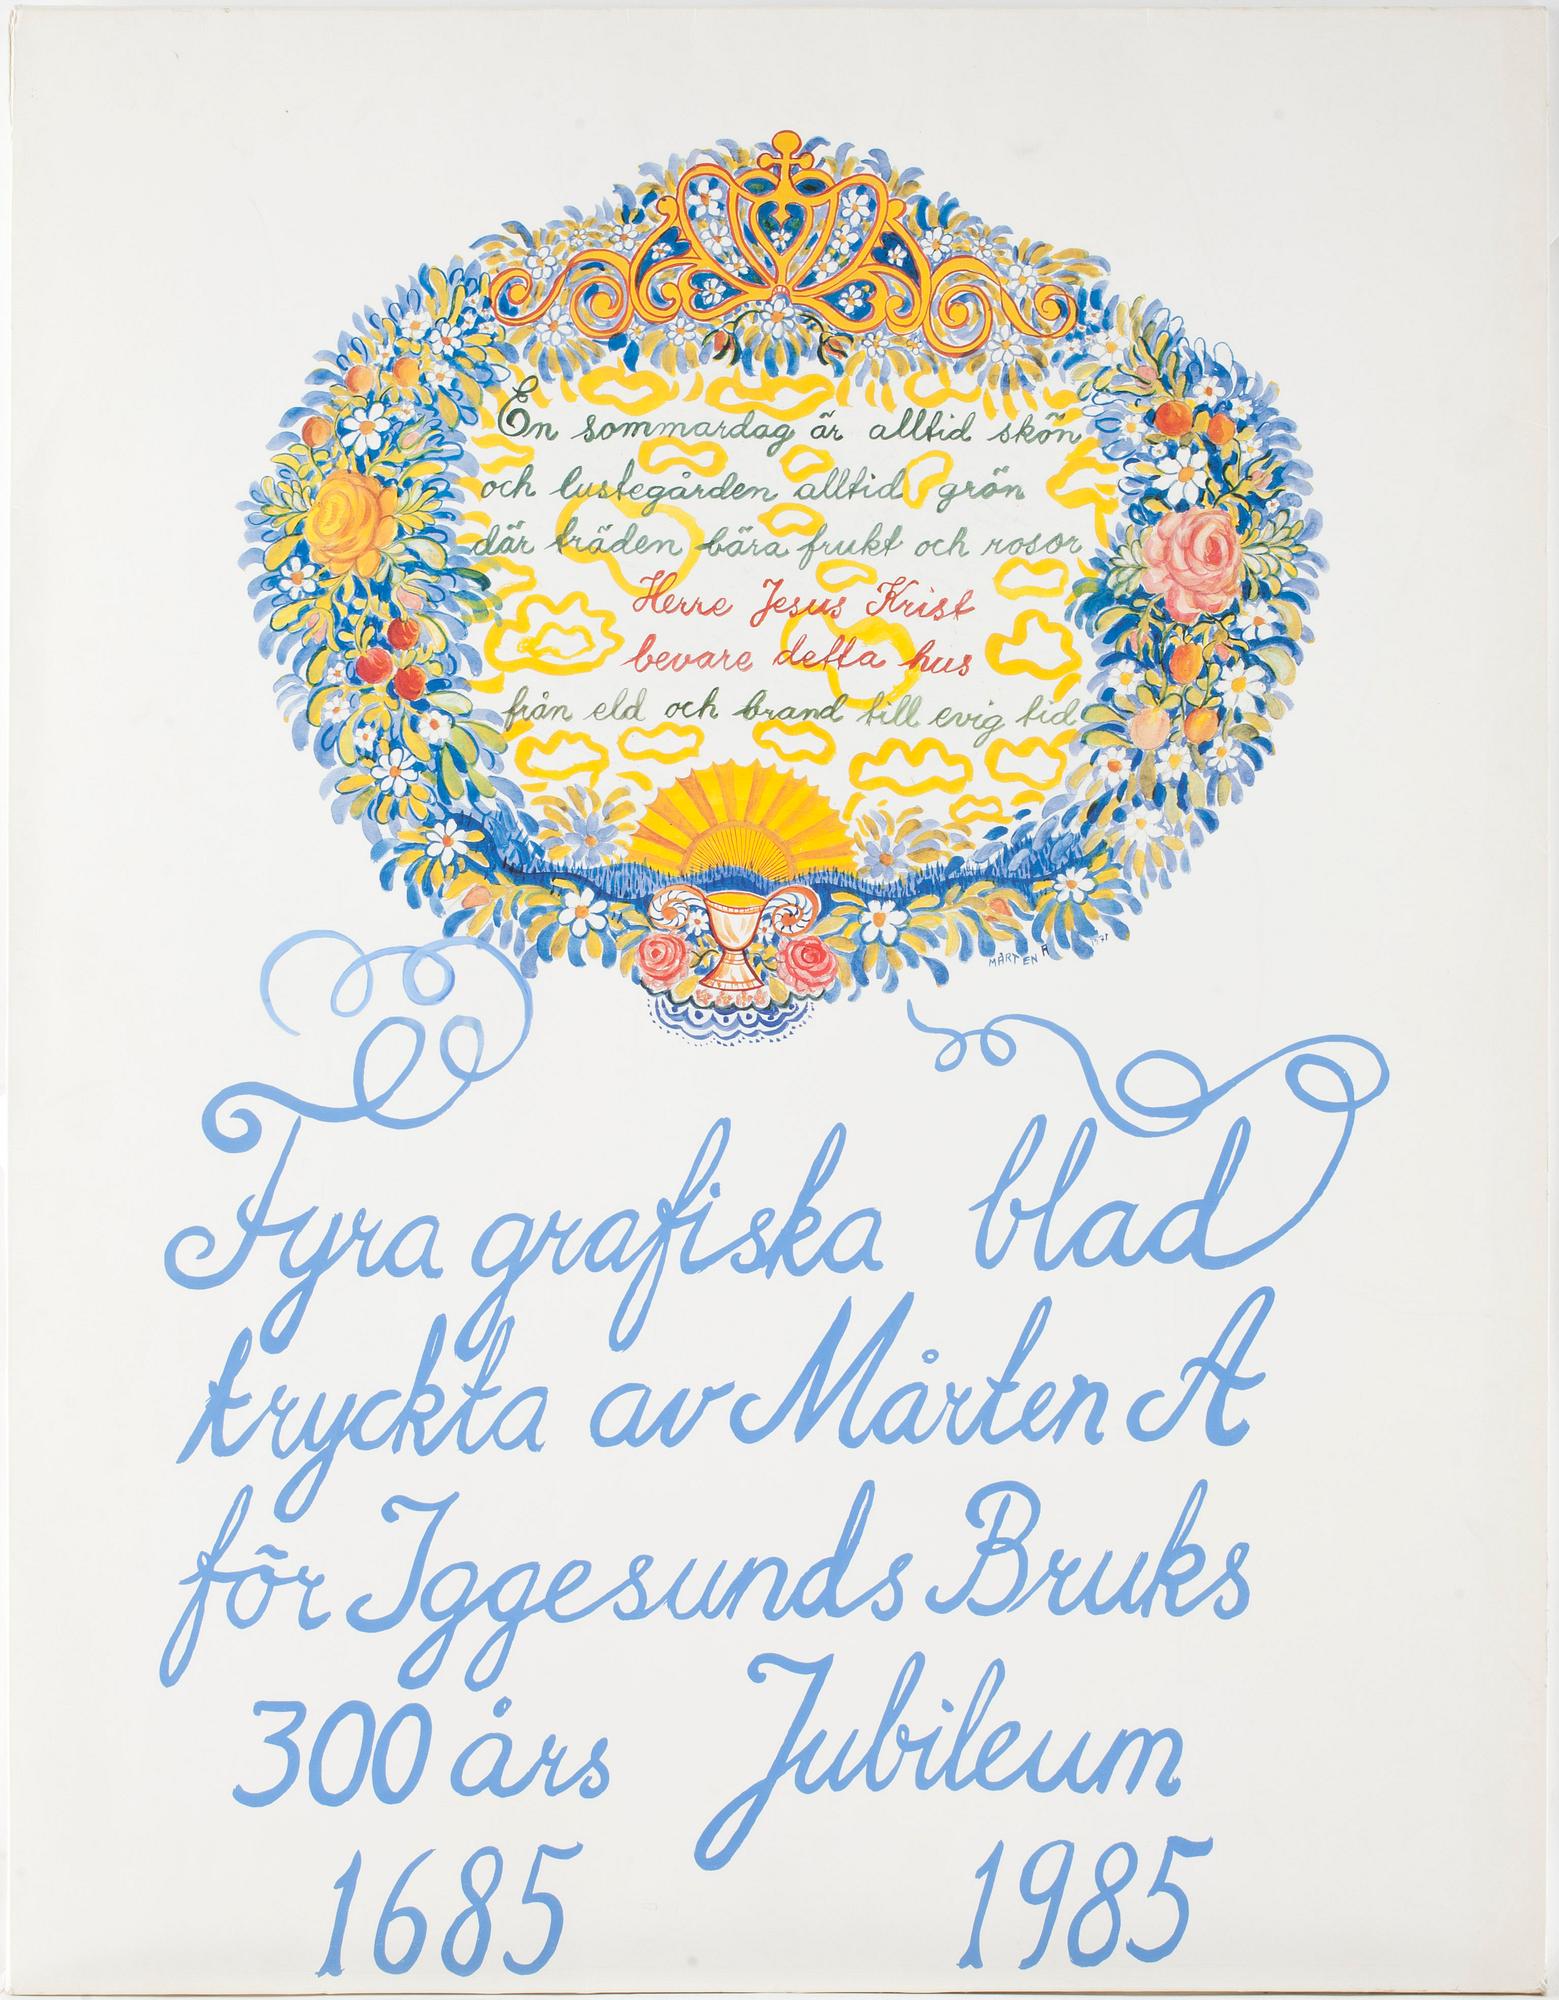 En sommardag är alltid skön
och lustegården alltid grön
där träden bära frukt och rosor
Herre Jesus Krist
bevare detta hus
från eld och brand till evig tid
MÅRTEN A 1971
Fyra grafiska blad
tryckta av Mårten A
för Iggesunds Bruks
300 års Jubileum
1685 1985